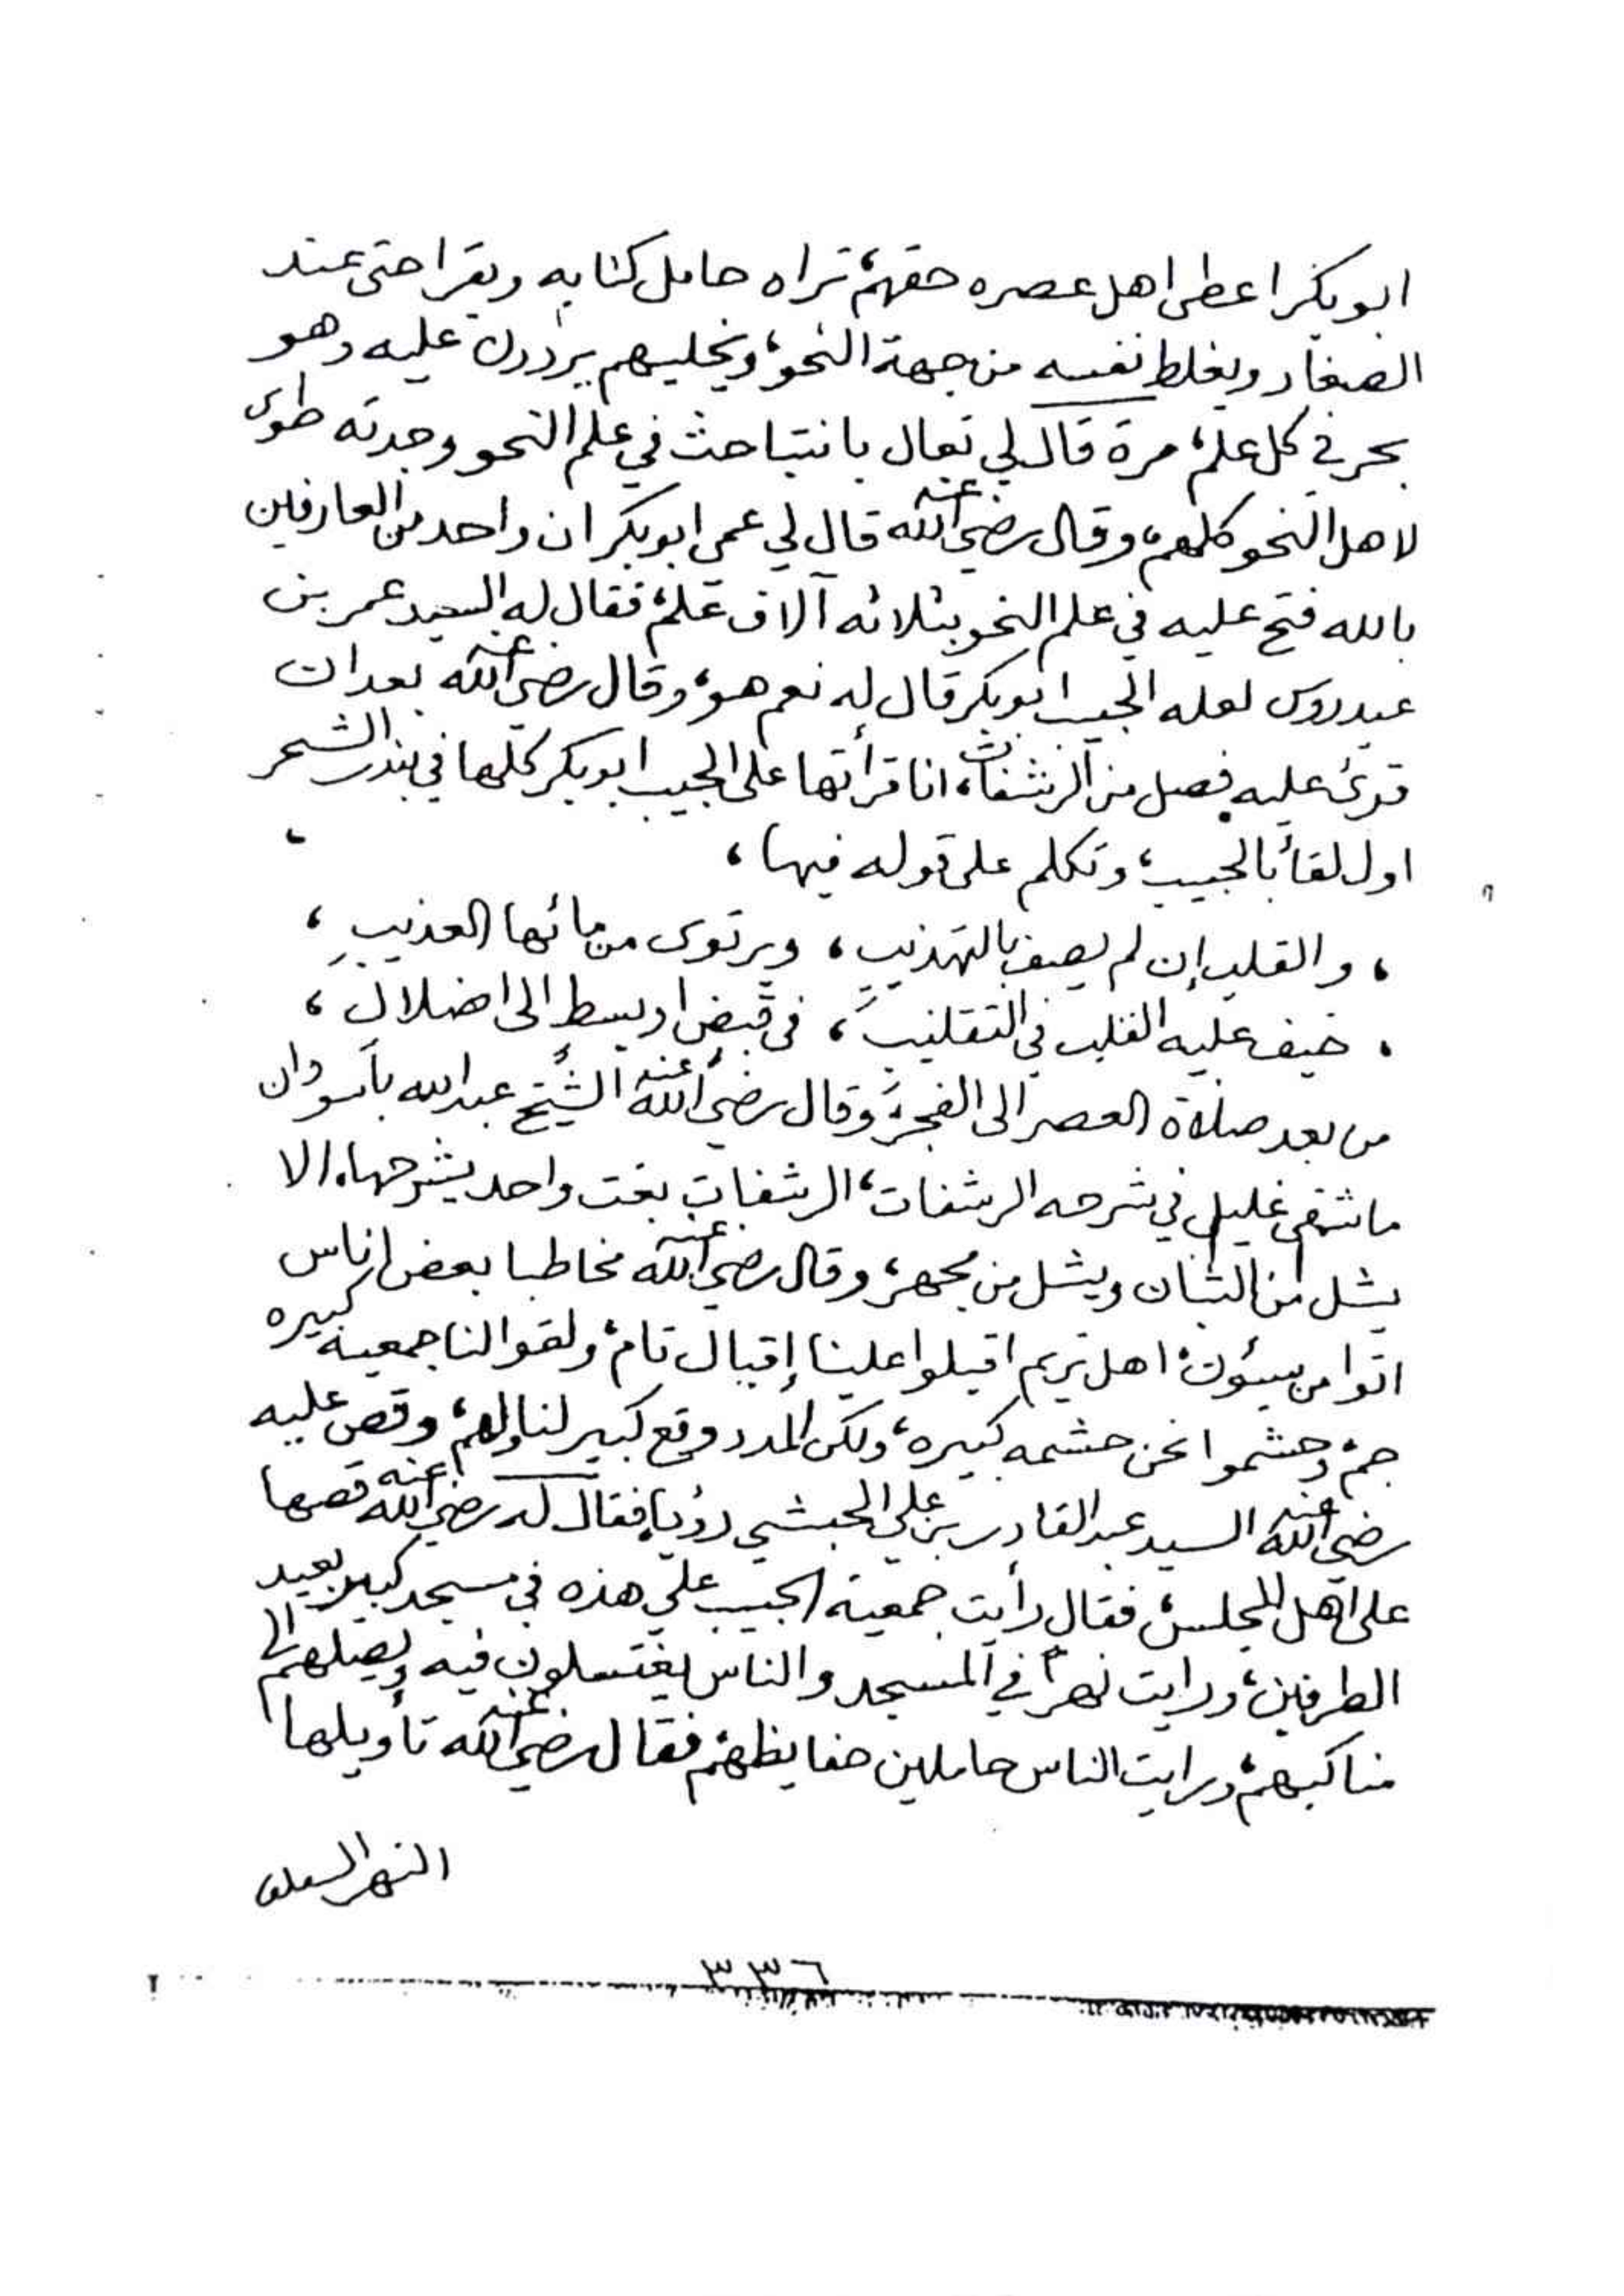 ابوبكر اعطى اهل عصره حقهم، تراه حامل كتابه ويقرا حتى عند
الصغار ويغلط نفسه من جهة النحو، ويخليهم يردون عليه وهو
بحر في كل علم، مرة قال لي تعال بانتباحث في علم النحو وجدته طوى
لاهل النحو كلهم، وقال رضي الله عنه قال لي عمي ابوبكر ان واحد من العارفين
بالله فتح عليه في علم النحو بثلاثه آلاف علم، فقال له السيد عمر بن
عيدروس لعله الحبيب ابوبكر قال له نعم هو، وقال رضي الله عنه بعد ان
قرئ عليه فصل من الرشفات، انا قرأتها على الحبيب ابوبكر كلها في بندر الشحر
اول لقأ بالحبيب، وتكلم على قوله فيها،
، والقلب إن لم يصف بالتهذيب ، ويرتوى من مائها العذيب ،
، خيف عليه القلب في التقليب ، في قبض او بسط الى اضلال ،
من بعد صلاة العصر الى الفجر، وقال رضي الله عنه الشيخ عبدالله باسودان
ما شفى غليل في شرحه الرشفات، الرشفات بغت واحد يشرحها، الا
يشل من الشان ويشل من مجهر، وقال رضي الله عنه مخاطبا بعض اناس
اتوا من سيئون، اهل تريم اقبلوا علينا إقبال تام، ولقوا لنا جمعية كبيره
جم، وحشموا نحن حشمه كبيره، ولكن المدد وقع كبير لنا ولهم، وقص عليه
رضي الله عنه السيد عبدالقادر بن علي الحبشي رؤيا، فقال له رضي الله عنه قصها
على اهل المجلس، فقال رأيت جمعية الحبيب علي هذه في مسجد كبير بعيد
الطرفين، ورايت نهراً في المسجد والناس يغتسلون فيه ويصلهم الى
مناكبهم، ورايت الناس حاملين حفايظهم، فقال رضي الله عنه تأويلها
النهر
٣٣٦